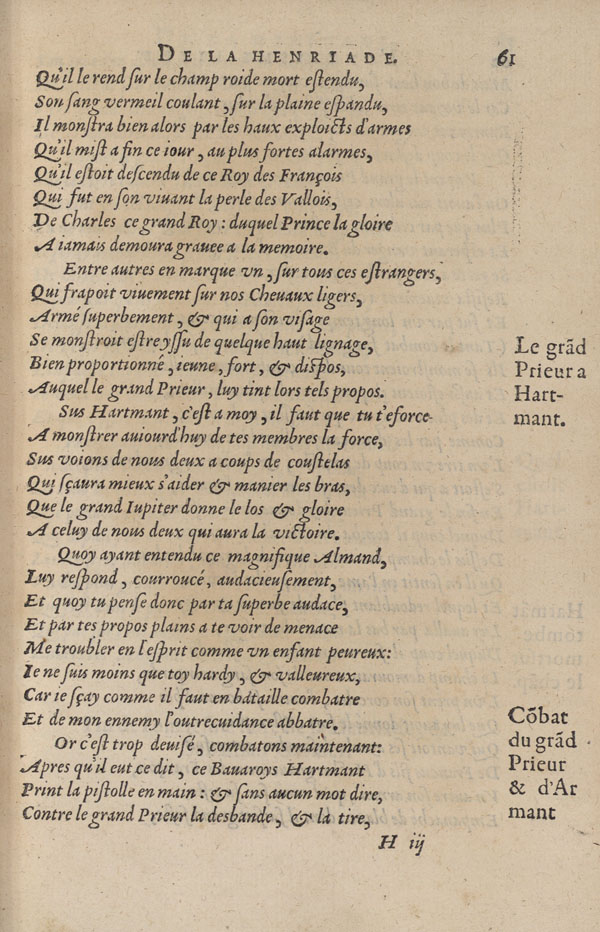 DE LA HENRIADE. 61
Qu'il le rend ſur le champ roide mort eſtendu,
Son ſang vermeil coulant, ſur la plaine eſpandu,
Il monſtra bien alors par les haux exploicts d'armes
Qu'il miſt a fin ce iour, au plus fortes alarmes,
Qu'il eſtoit deſcendu de ce Roy des François
Qui fut en ſon viuant la perle des Vallois,
De Charles ce grand Roy : duquel Prince la gloire
A iamais demoura grauee a la memoire.
Entre autres en marque vn, ſur tous ces eſtrangers,
Qui frapoit viuement ſur nos Cheuaux ligers,
Armé ſuperbement, & qui a ſon viſage
Se monſtroit eſtre yſſu de quelque haut lignage,
Bien proportionné, ieune, fort, & diſpos,
Auquel le grand Prieur, luy tint lors tels propos.
Le grãd
Prieur a
Hart-
mant.
Sus Hartmant, c'eſt a moy, il faut que tu t'eforce
A monſtrer auiourd'huy de tes membres la force,
Sus voions de nous deux a coups de couſtelas
Qui ſçaura mieux s'aider & manier les bras,
Que le grand Iupiter donne le los & gloire
A celuy de nous deux qui aura la victoire.
Quoy ayant entendu ce magnifique Almand,
Luy reſpond, courroucé, audacieuſement,
Et quoy tu penſe donc par ta ſuperbe audace,
Et par tes propos plains a te voir de menace
Me troubler en l'eſprit comme vn enfant peureux:
Ie ne ſuis moins que toy hardy, & valleureux,
Car ie ſçay comme il faut en bátaille combatre
Et de mon ennemy l'outrecuidance abbatre.
Or c'eſt trop deuiſé, combatons maintenant:
Apres qu'il eut ce dit, ce Bauaroys Hartmant
Print la piſtolle en main : & ſans aucun mot dire,
Contre le grand Prieur la desbande, & la tire,
Cõbat
du grãd
Prieur
& d'Ar
mant
H iij